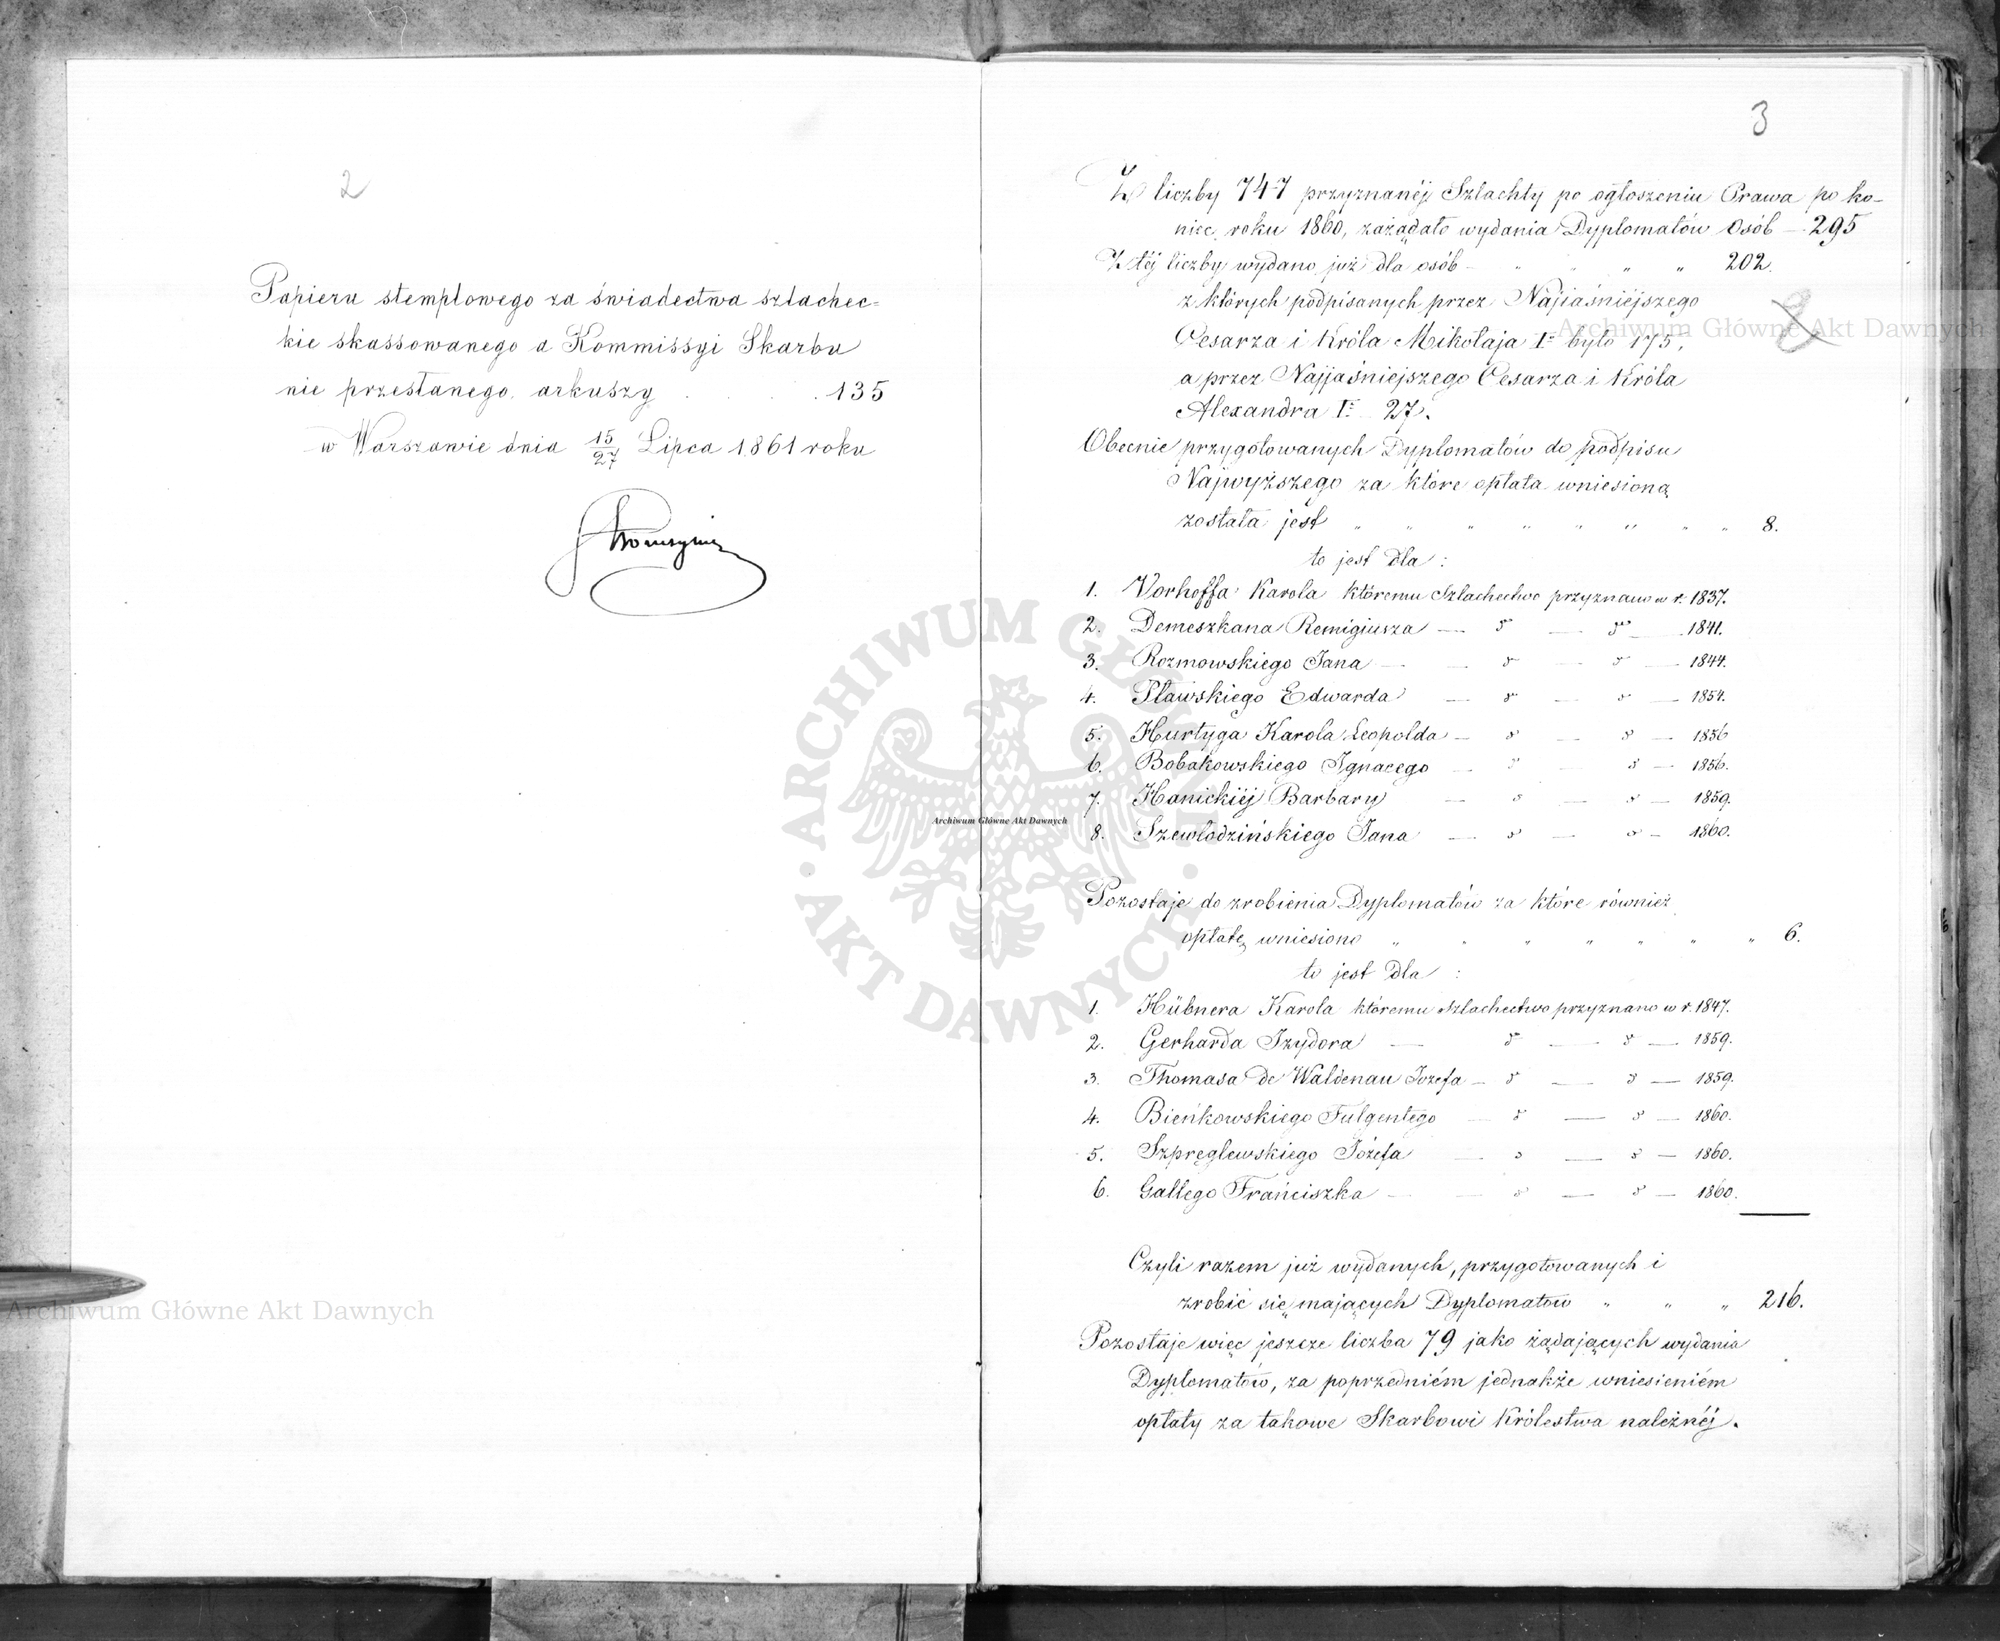 2
Papieru stemplowego za świadectwa szlachec=
kie skassowanego a Kommissyi Skarbu
nie przesłanego arkuszy . . . . 135
w Warszawie dnia 15/27 Lipca 1861 roku
3
Z liczby 747 przyznanéj Szlachty po ogłoszeniu Prawa po ko-
niec roku 1860, zażądało wydania Dyplomatów Osób — 295
Z téj liczby wydano już dla osób — " " " " 202.
z których podpisanych przez Najiaśniéjszego
Cesarza i Króla Mikołaja Igo było 175,
a przez Najjaśniejszego Cesarza i Króla
Alexandra Igo 27.
Obecnie przygotowanych Dyplomatów do podpisu
Najwyższego za które opłata wniesioną
została jest " " " " " " " " 8.
to jest dla :
1. Vorhoffa Karola któremu Szlachectwo przyznano w r. 1837.
2. Demeszkana Remigiusza — d° — d° — 1841.
3. Rozmowskiego Jana — — d° — d° — 1844.
4. Pławskiego Edwarda — d° — d° — 1854.
5. Hurtyga Karola Leopolda — d° — d° — 1856
6. Bobakowskiego Ignacego — d° — d° — 1856.
7. Hanickiéj Barbary — d° — d° — 1859.
8. Szewłodzińskiego Jana — d° — d° — 1860.
Pozostaje do zrobienia Dyplomatów za które również
opłatę wniesiono " " " " " " " 6.
to jest dla :
1. Hübnera Karola któremu Szlachectwo przyznano w r. 1847.
2. Gerharda Izydora — d° — d° — 1859.
3. Thomasa de Waldenau Józefa — d° — d° — 1859.
4. Bieńkowskiego Fulgentego — d° — d° — 1860.
5. Szpręglewskiego Józefa — d° — d° — 1860.
6. Gallego Franciszka — — d° — d° — 1860.
Czyli razem już wydanych, przygotowanych i
zrobić się mających Dyplomatów " " " 216.
Pozostaje więc jeszcze liczba 79 jako żądających wydania
Dyplomatów, za poprzedniém jednakże wniesieniém
opłaty za takowe Skarbowi Królestwa należnéj.
Archiwum Główne Akt Dawnych
Archiwum Główne Akt Dawnych
Archiwum Główne Akt Dawnych
ARCHIWUM GŁÓWNE AKT DAWNYCH